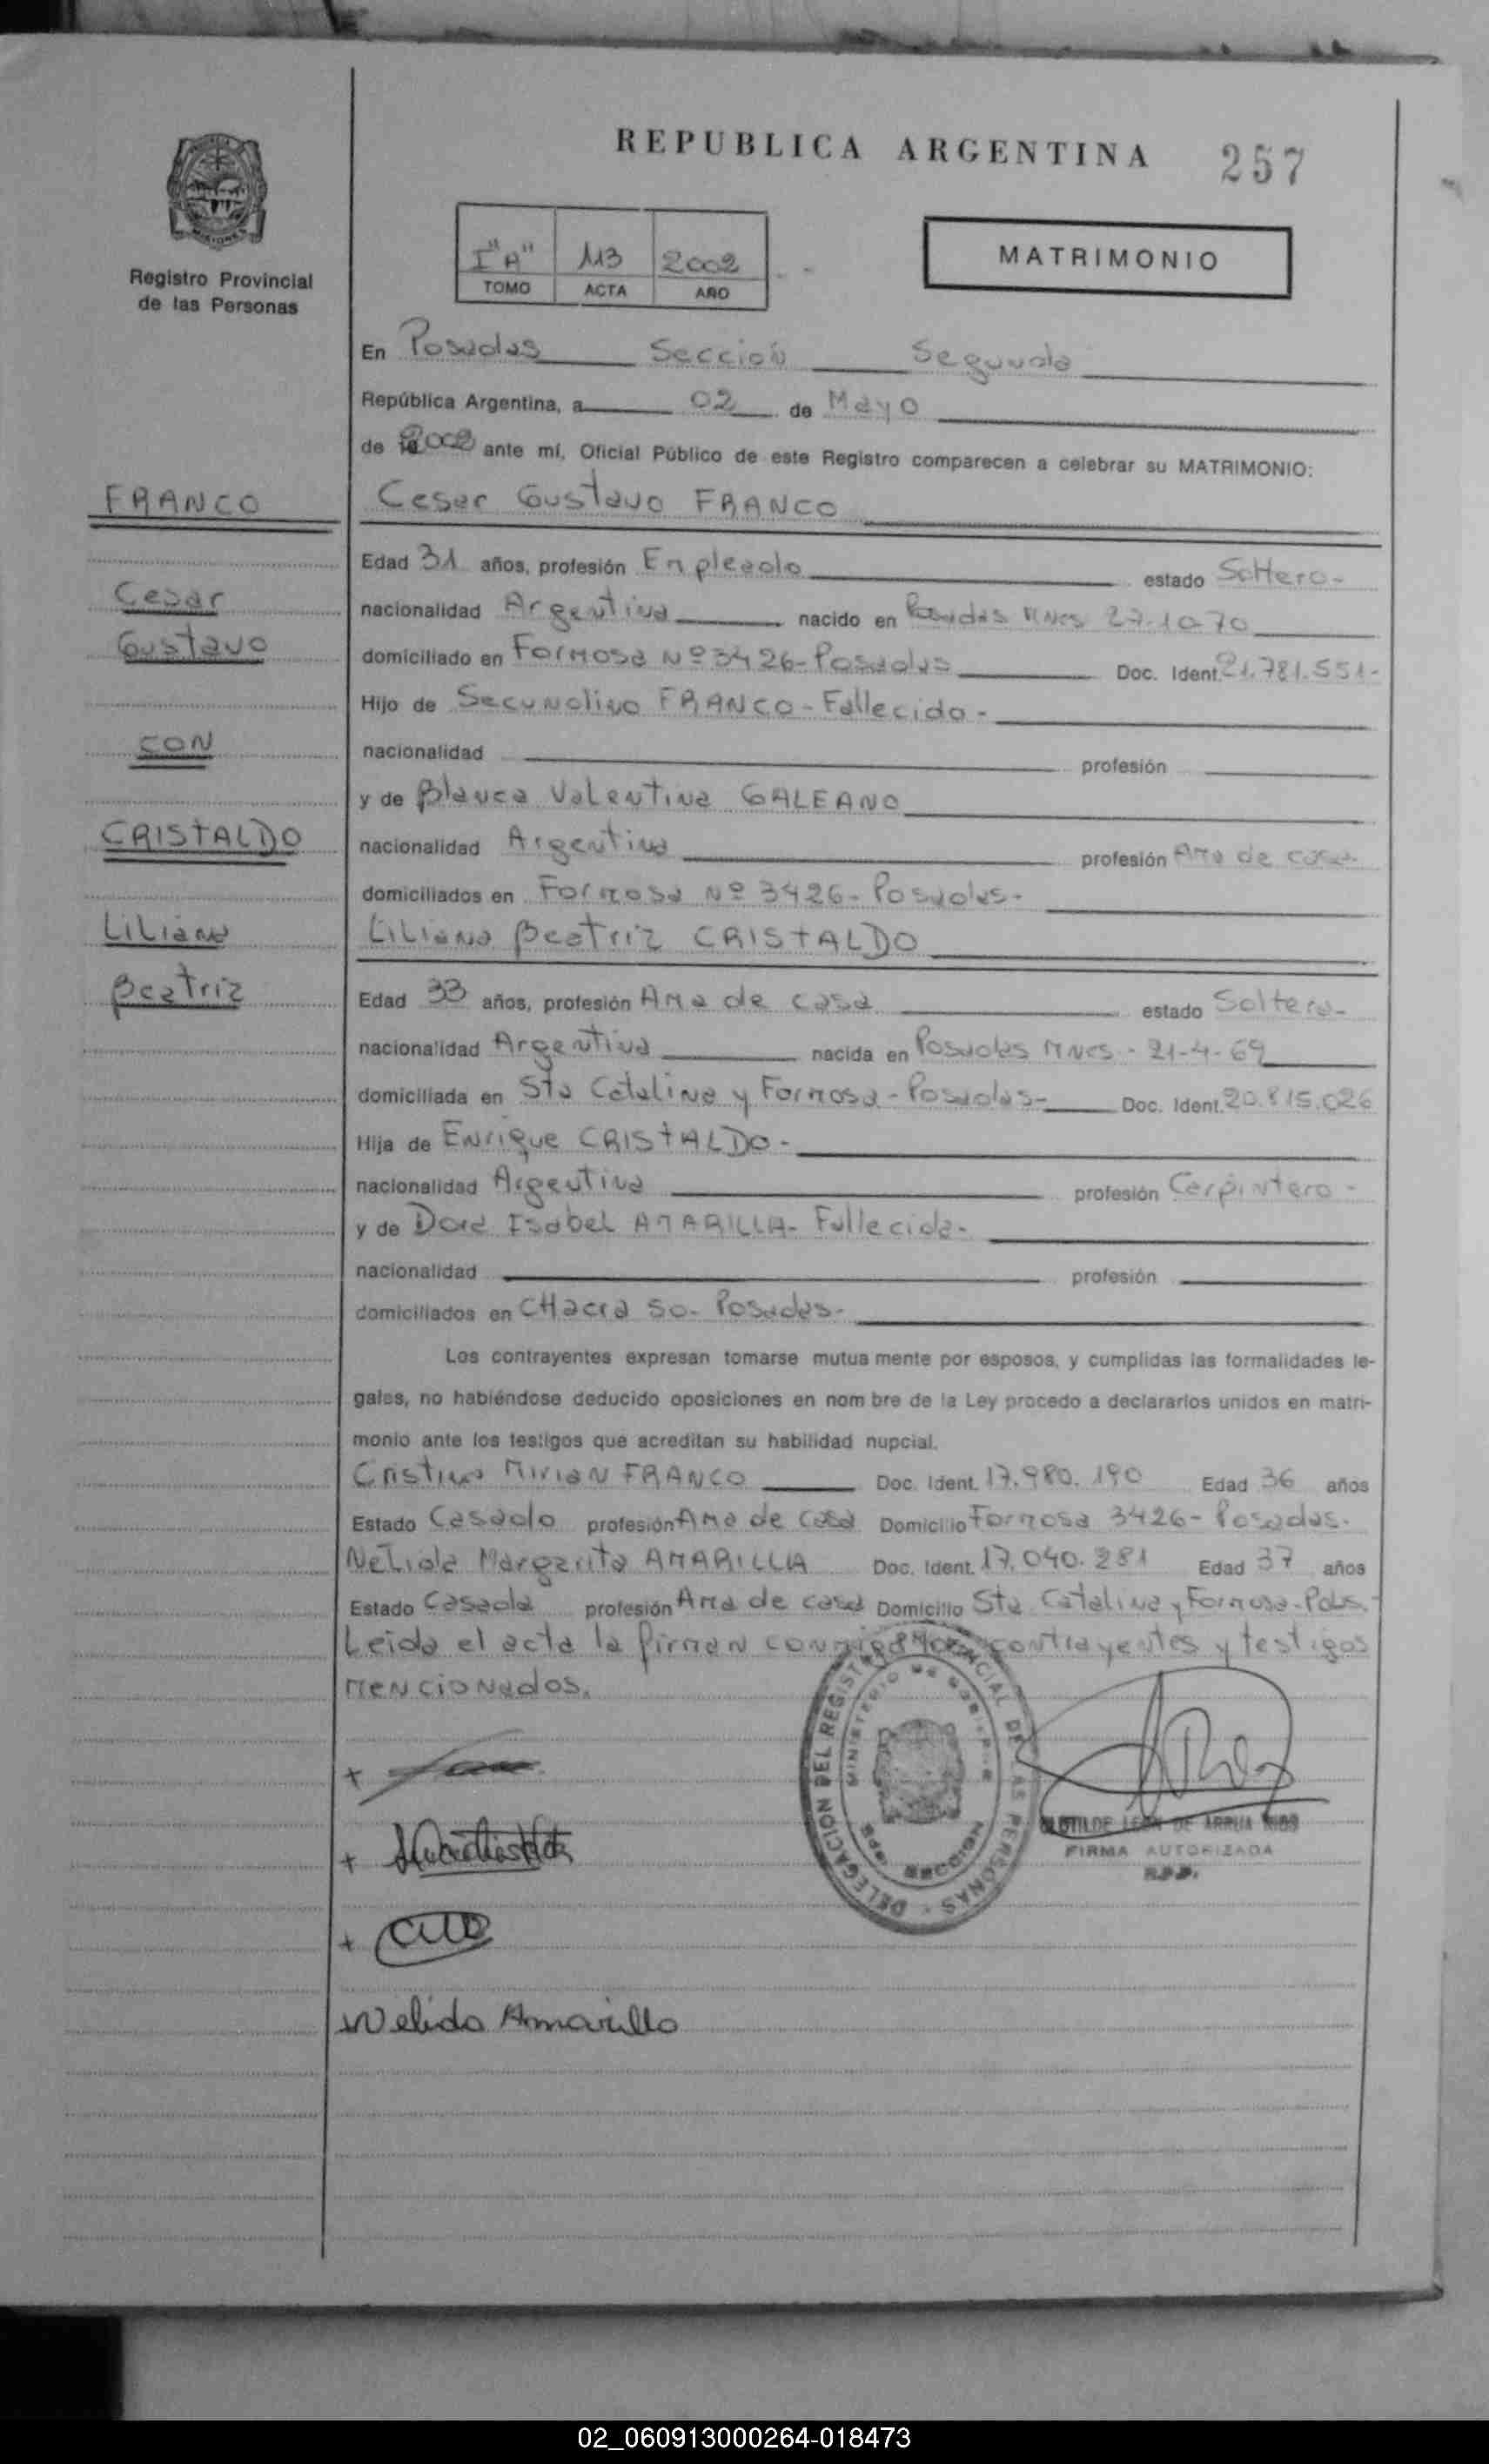 REPUBLICA ARGENTINA 257
MISIONES
Registro Provincial
de las Personas
I "A" 113 2002
TOMO ACTA AÑO
MATRIMONIO
En Posadas Sección Segunda
República Argentina, a 02 de Mayo
de 2002 ante mí, Oficial Público de este Registro comparecen a celebrar su MATRIMONIO:
FRANCO
Cesar
Gustavo
CON
CRISTALDO
Liliana
Beatriz
Cesar Gustavo FRANCO
Edad 31 años, profesión Empleado estado Soltero-
nacionalidad Argentina nacido en Posadas Mnes 27-10-70
domiciliado en Formosa Nº 3426-Posadas Doc. Ident. 21.781.551-
Hijo de Secundino FRANCO-Fallecido-
nacionalidad profesión
y de Blanca Valentina GALEANO
nacionalidad Argentina profesión Ama de casa-
domiciliados en Formosa Nº 3426-Posadas-
Liliana Beatriz CRISTALDO
Edad 33 años, profesión Ama de casa estado Soltera-
nacionalidad Argentina nacida en Posadas Mnes.- 21-4-69
domiciliada en Sta Catalina y Formosa-Posadas- Doc. Ident. 20.815.026
Hija de Enrique CRISTALDO-
nacionalidad Argentina profesión Carpintero-
y de Dora Isabel AMARILLA-Fallecida-
nacionalidad profesión
domiciliados en CHacra 50- Posadas-
Los contrayentes expresan tomarse mutua mente por esposos, y cumplidas las formalidades le-
gales, no habiéndose deducido oposiciones en nom bre de la Ley procedo a declararlos unidos en matri-
monio ante los testigos que acreditan su habilidad nupcial.
Cristina Mirian FRANCO Doc. Ident. 17.980.190 Edad 36 años
Estado Casado profesión Ama de casa Domicilio Formosa 3426-Posadas-
Nelida Margarita AMARILLA Doc. Ident. 17.040.281 Edad 37 años
Estado Casada profesión Ama de casa Domicilio Sta Catalina y Formosa-Pdas.-
Leida el acta la firman conmigo los contrayentes y testigos
mencionados.
DELEGACION DEL REGISTRO PROVINCIAL DE LAS PERSONAS
MINISTERIO DE GOBIERNO
SECCION
CLOTILDE LEON DE ARRUA RIOS
FIRMA AUTORIZADA
R.P.P.
Nelida Amarilla
02_060913000264-018473